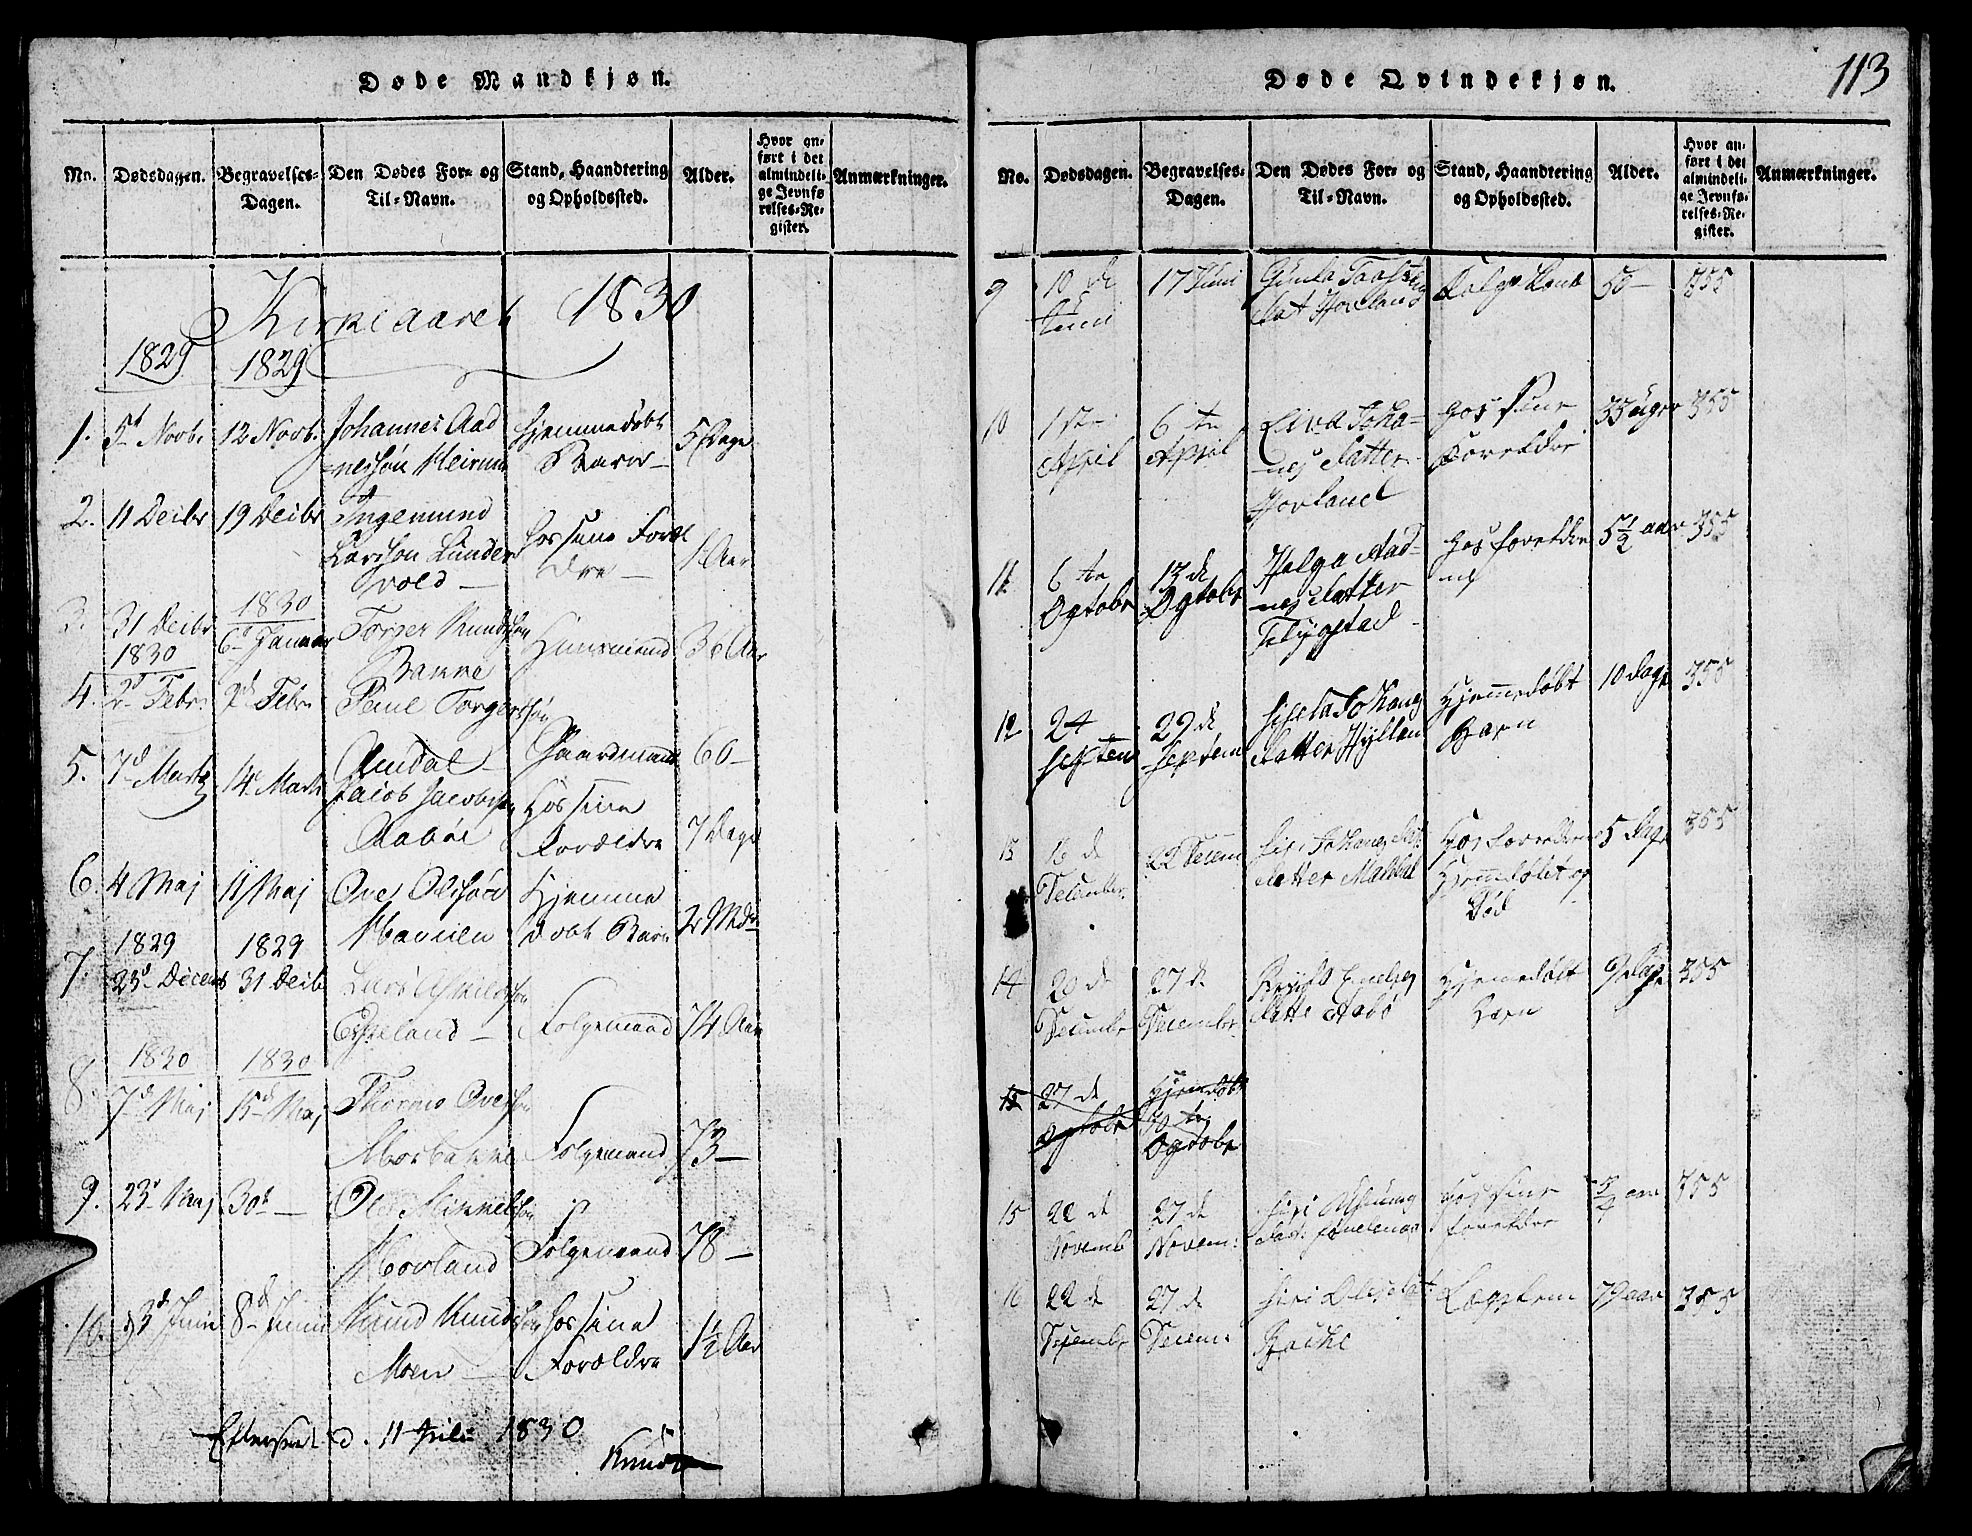 Døde Mandkjøn.
No. Dødsdagen. Begravelses-Dagen. Den Dødes For- og Til-Navn. Stand, Haandtering og Opholdssted. Alder. Hvor anført i det almindelige Jevnførelses-Register. Anmærkninger.
Kirkeaaret 1830
1829 1829
1. 5t Novb. 12 Novb. Johannes Aad
nessøn
Hjemmedøbt
Barn
5 Dage
2. 11 Decbr 19 Decbr Ingemund
Larssøn Lunde
vold
hos sine Foræl
dre
1 Aar
3. 31 Decbr
1830
6 Januar
Torger Knudssøn
Bakke
Huusmand
36 Aar
1830
4. 2d Febr. 7d Febr. Peder Torgerssøn
Aamdal
Gaardmand
60
5. 7d Marts 14 Marts Jacob Jacobssøn
Aabøe
Hos sine
Forældre
7 Dage
6. 4 Maj 11 Maj Ove Olssøn
Hjemme
døbt Barn
2 Mdr
1829 1829
7. 23d Decemb 31 Decbr Lars
Eskeland
Folgemand
74 Aar
1830 1830
8. 7d Maj 15d Maj Thormo Ovessøn
Folgemand
73
9. 23d Maj 30t Ole Mikkelssøn
Hovland
Folgemand
78
10. 3d Junii 8d Junii Knud Knudssøn
Moen
hos sine
Forældre
1½ Aar
1830
Døde Qvindekjøn.
113
No. Dødsdagen. Begravelses-Dagen. Den Dødes For- og Til-Navn. Stand, Haandtering og Opholdssted. Alder. Hvor anført i det almindelige Jevnførelses-Register. Anmærkninger.
9 10 de
Juni
17 Juni
Hovland
50 355
10 1ste
April
6te
April
Joha-
nes Datter
Hovland
hos sine
Foreldre
33 uger 355
11 6te
Ogtobr
13de
Ogtobr
Helga Aad-
nes Datter
Flygstad
hos foreldre
ne
5½ aar 355
12 24
Septem
29 de
Septem
Johans
Datter Hylten
Hjemedøbt
Barn
10 Dage 355
13 16 de
December
22 Decem
Siri Johanes
Datter
hos Foreldrene
Hjemedøbt og
Død
5 Dage 355
14 20 de
Decembr
27 de
Decembr
Datter Aabø
Hjemedøbt
Barn
9 Dage 355
15 27 de
Ogtobr
Hjemedøbt
30te
Ogtobr
15 22 de
Novemb
27 de
Novem:
Siri
hos sine
foreldre
5/4 aar 355
16 22 de
Decembr
27 de
Decem:
Siri Olesdat
Backe
Lægslem
79 aar 355